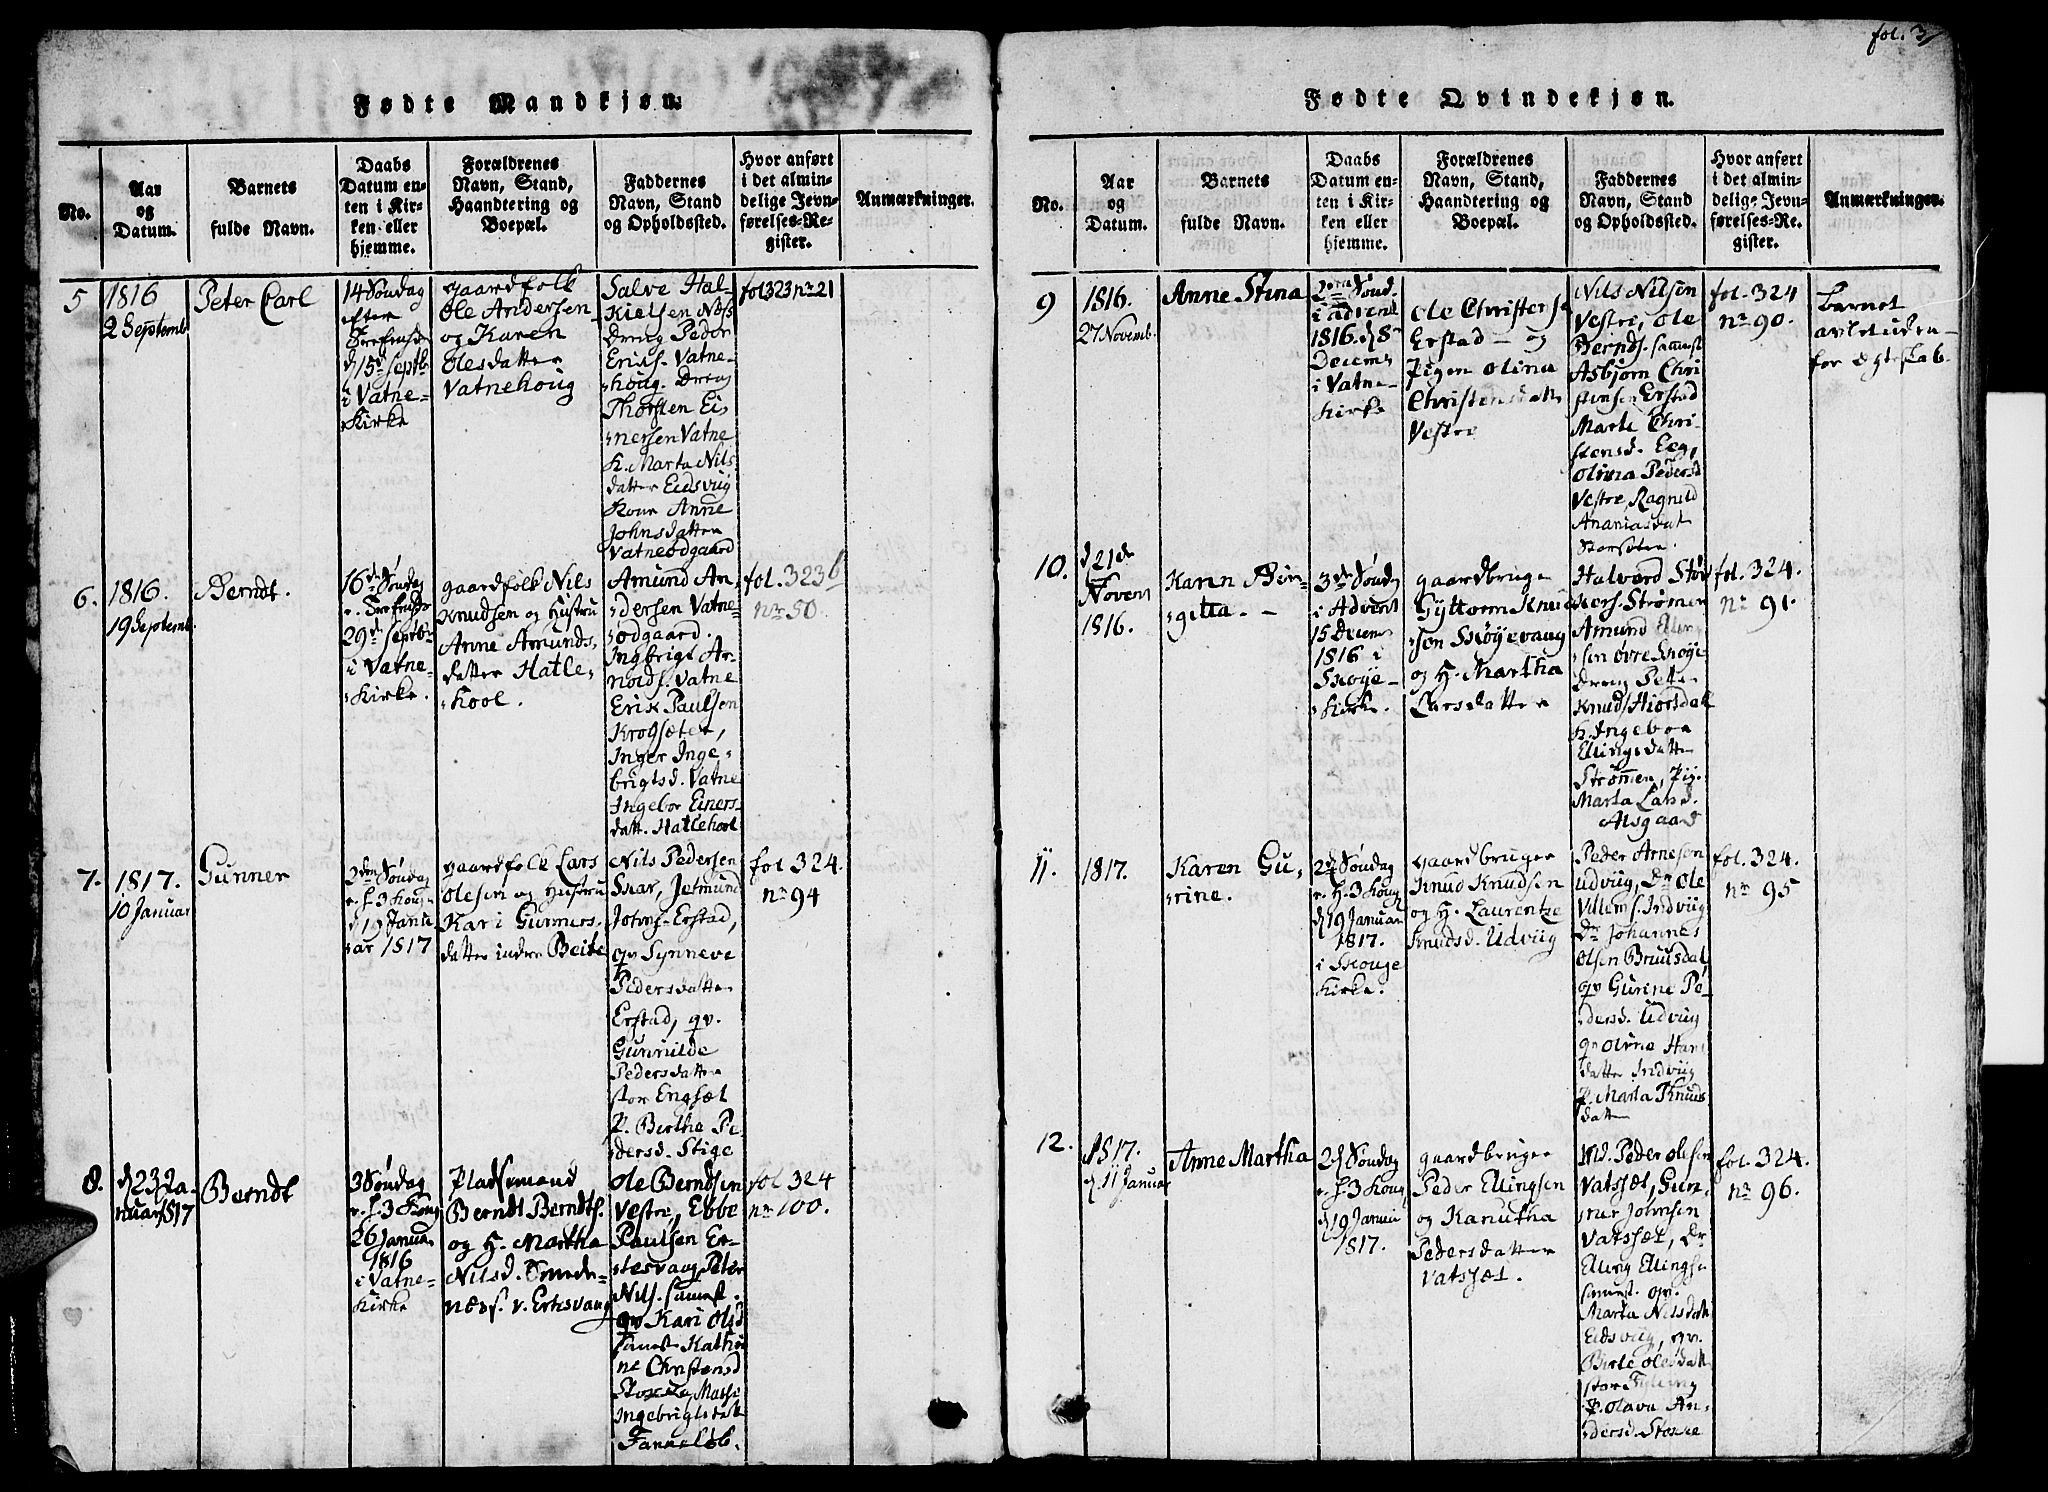 fol. 3
Fødte Mandkjøn.
No.
Aar
og
Datum.
Barnets
fulde Navn.
Daabs
Datum en-
ten i Kir-
ken eller
hjemme.
Forældrenes
Navn, Stand,
Haandtering og
Boepæl.
Faddernes
Navn, Stand
og Opholdssted.
Hvor anført
i det almin-
delige Jevn-
førelses-Re-
gister.
Anmærkninger.
5
1816
2 Septemb
Peter Carl
14 Søndag
efter
d 15 Septb
i Vatne-
Kirke
gaardfolk
Ole Andersen
og Karen
Olesdatter
Vatnehoug
Salve Hal-
Kielsen
Dreng Peder
Erics. Vatne-
houg. Dreng
Thorsten Ei-
nersen Vatne
K. Marta Nils
datter Eidsviig
Kone Anne
Johnsdatter
Vatneødgaard
fol 323 nr 21
6.
1816.
19 Septemb.
Berndt.
16de Søndag
29de Septb
i Vatne-
Kirke.
gaardfolk Nils
Knudsen og Hustru
Anne Amunds-
datter Hatle-
hool.
Amund An-
dersen Vatne-
ødgaard.
Ingbrigt Ar-
nolds. Vatne
Erik Paulsen
Krogsæter,
Inger Inge-
brigtsd. Vatne
Ingebor Einers-
datt. Hatlehool
fol. 323 b
nr 50.
7.
1817.
10 Januar
Gunner
2den Søndag
e. H. 3 Kong
d 19 Janu
ar 1817
gaardfolk Lars
Olesen og Hustru
Kari Gunners-
datter indre Beite
Nils Pedersen
Skar, Jetmund
Johns. Erstad,
qv Synneve
Pedersdatter
Erstad, qv.
Gunnilde
Pedersdatter
stor Engsæt
P. Birthe Pe-
dersd. Stige
fol 324.
nr 94
8.
d 23 Ja-
nuar 1817
Berndt
3 Søndag
e. H. 3 Kong
26 Januar
1816
i Vatne-
Kirke
Pladsemand
Berndt Berndts.
og H. Martha
Nilsd.
v. Erhsvaag
Ole Berndsen
Vestre, Ebbe
Paulsen Er-
stesvaag Peter
Nils. samest.
qv Kari Olsd
samest Kathri
ne Christensd
Marte
Ingebrigtsdatt
fol 324
nr 100.
Fødte Qvindekjøn.
No.
Aar
og
Datum.
Barnets
fulde Navn.
Daabs
Datum en-
ten i Kir-
ken eller
hjemme.
Forældrenes
Navn, Stand,
Haandtering og
Boepæl.
Faddernes
Navn, Stand
og Opholdssted.
Hvor anført
i det almin-
delige Jevn-
førelses-Re-
gister.
Anmærkninger.
9
1816.
27 Novemb.
Anne Stina
2den Sønd.
i advent
1816. d 8
Decem
i Vatne-
Kirke
Ole Christens
Erstad - og
Pigen Olina
Christensdatt
Vestre
Nils Nilsen
Vestre, Ole
Bernds. samest
Asbjørn Chri
stensen Erstad
Marte Chri-
stensd. Eeg,
Olina Pedersd
Vestre, Ragnild
Ananiasdat
fol. 324
nr 90.
Barnet
avlet uden-
for Egteskab.
10.
d 21de
Novem
1816.
Karen Bir-
gitta. -
3de Søndag
i Advent
15 Decem
1816 i
Skoye-
Kirke.
gaardbruger
Gyttorm Knud
sen Skoyevaag
og H. Martha
Larsdatter
Halvard
Strømen
Amund Elling
sen øvre Skoye
Dreng Peter
Knuds Hiorsdal
K. Ingebor
Ellingsdatter
Strømmen, Pig.
Marta Larsd.
Alsgaard
fol. 324.
nr 91.
11.
1817.
Karen Gu-
rine.
2d Søndag
e. H. 3 Kong
d 19 Januar
1817.
i Skouge
Kirke.
gaardbruger
Knud Knudsen
og H. Laurentze
Knudsd. Udviig
Peder Arneson
Udviig, Dr Ole
Villems. Indviig
Dr Johannes
Olsen Bruusdal,
qv Gurine Pe-
dersd. Udviig
qv Oline Hans
datter Indviig
P. Marta Knuds
datter
fol. 324.
nr 95
12.
1817.
d 11 Januar
Anne Martha
2d Søndag
e. H. 3 Kong
d 19 Janua
1817.
gaardbruger
Peder Ellingsen
og Kanutha
Pedersdatter
Vatssæt.
Md. Peder Olesen
Vatssæt, Gun-
ner Johnsen
Vatssæt, Dr
Elling Ellings
samest. qv.
Marta Nilsdatt
Eidsviig, qv.
Birte Olesdatt
stor
P. Olava An-
dersd. Stokke
fol. 324.
nr 96.